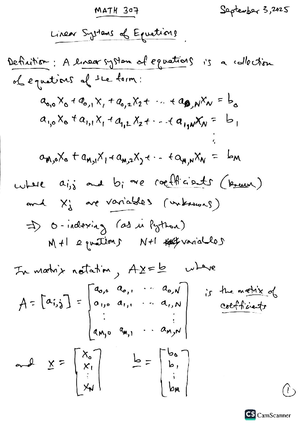 MATH 307
September 3, 2025
Linear Systems of Equations
Definition: A linear system of equations is a collection
of equations of the form:
a₀,₀ x₀ + a₀,₁ x₁ + a₀,₂ x₂ + ... + a₀,N xN = b₀
a₁,₀ x₀ + a₁,₁ x₁ + a₁,₂ x₂ + ... + a₁,N xN = b₁
⋮
aM,₀ x₀ + aM,₁ x₁ + aM,₂ x₂ + ... + aM,N xN = bM
where ai,j and bi are coefficients (known)
and xj are variables (unknowns)
⇒ 0-indexing (as in Python)
M+1 equations N+1 variables
In matrix notation, A x = b where
A = [ai,j] = [a₀,₀ a₀,₁ ... a₀,N
a₁,₀ a₁,₁ ... a₁,N
⋮
aM,₀ aM,₁ ... aM,N]
is the matrix of
coefficients
and x = [x₀ x₁ ⋮ xN] b = [b₀ b₁ ⋮ bM]
1
CS CamScanner